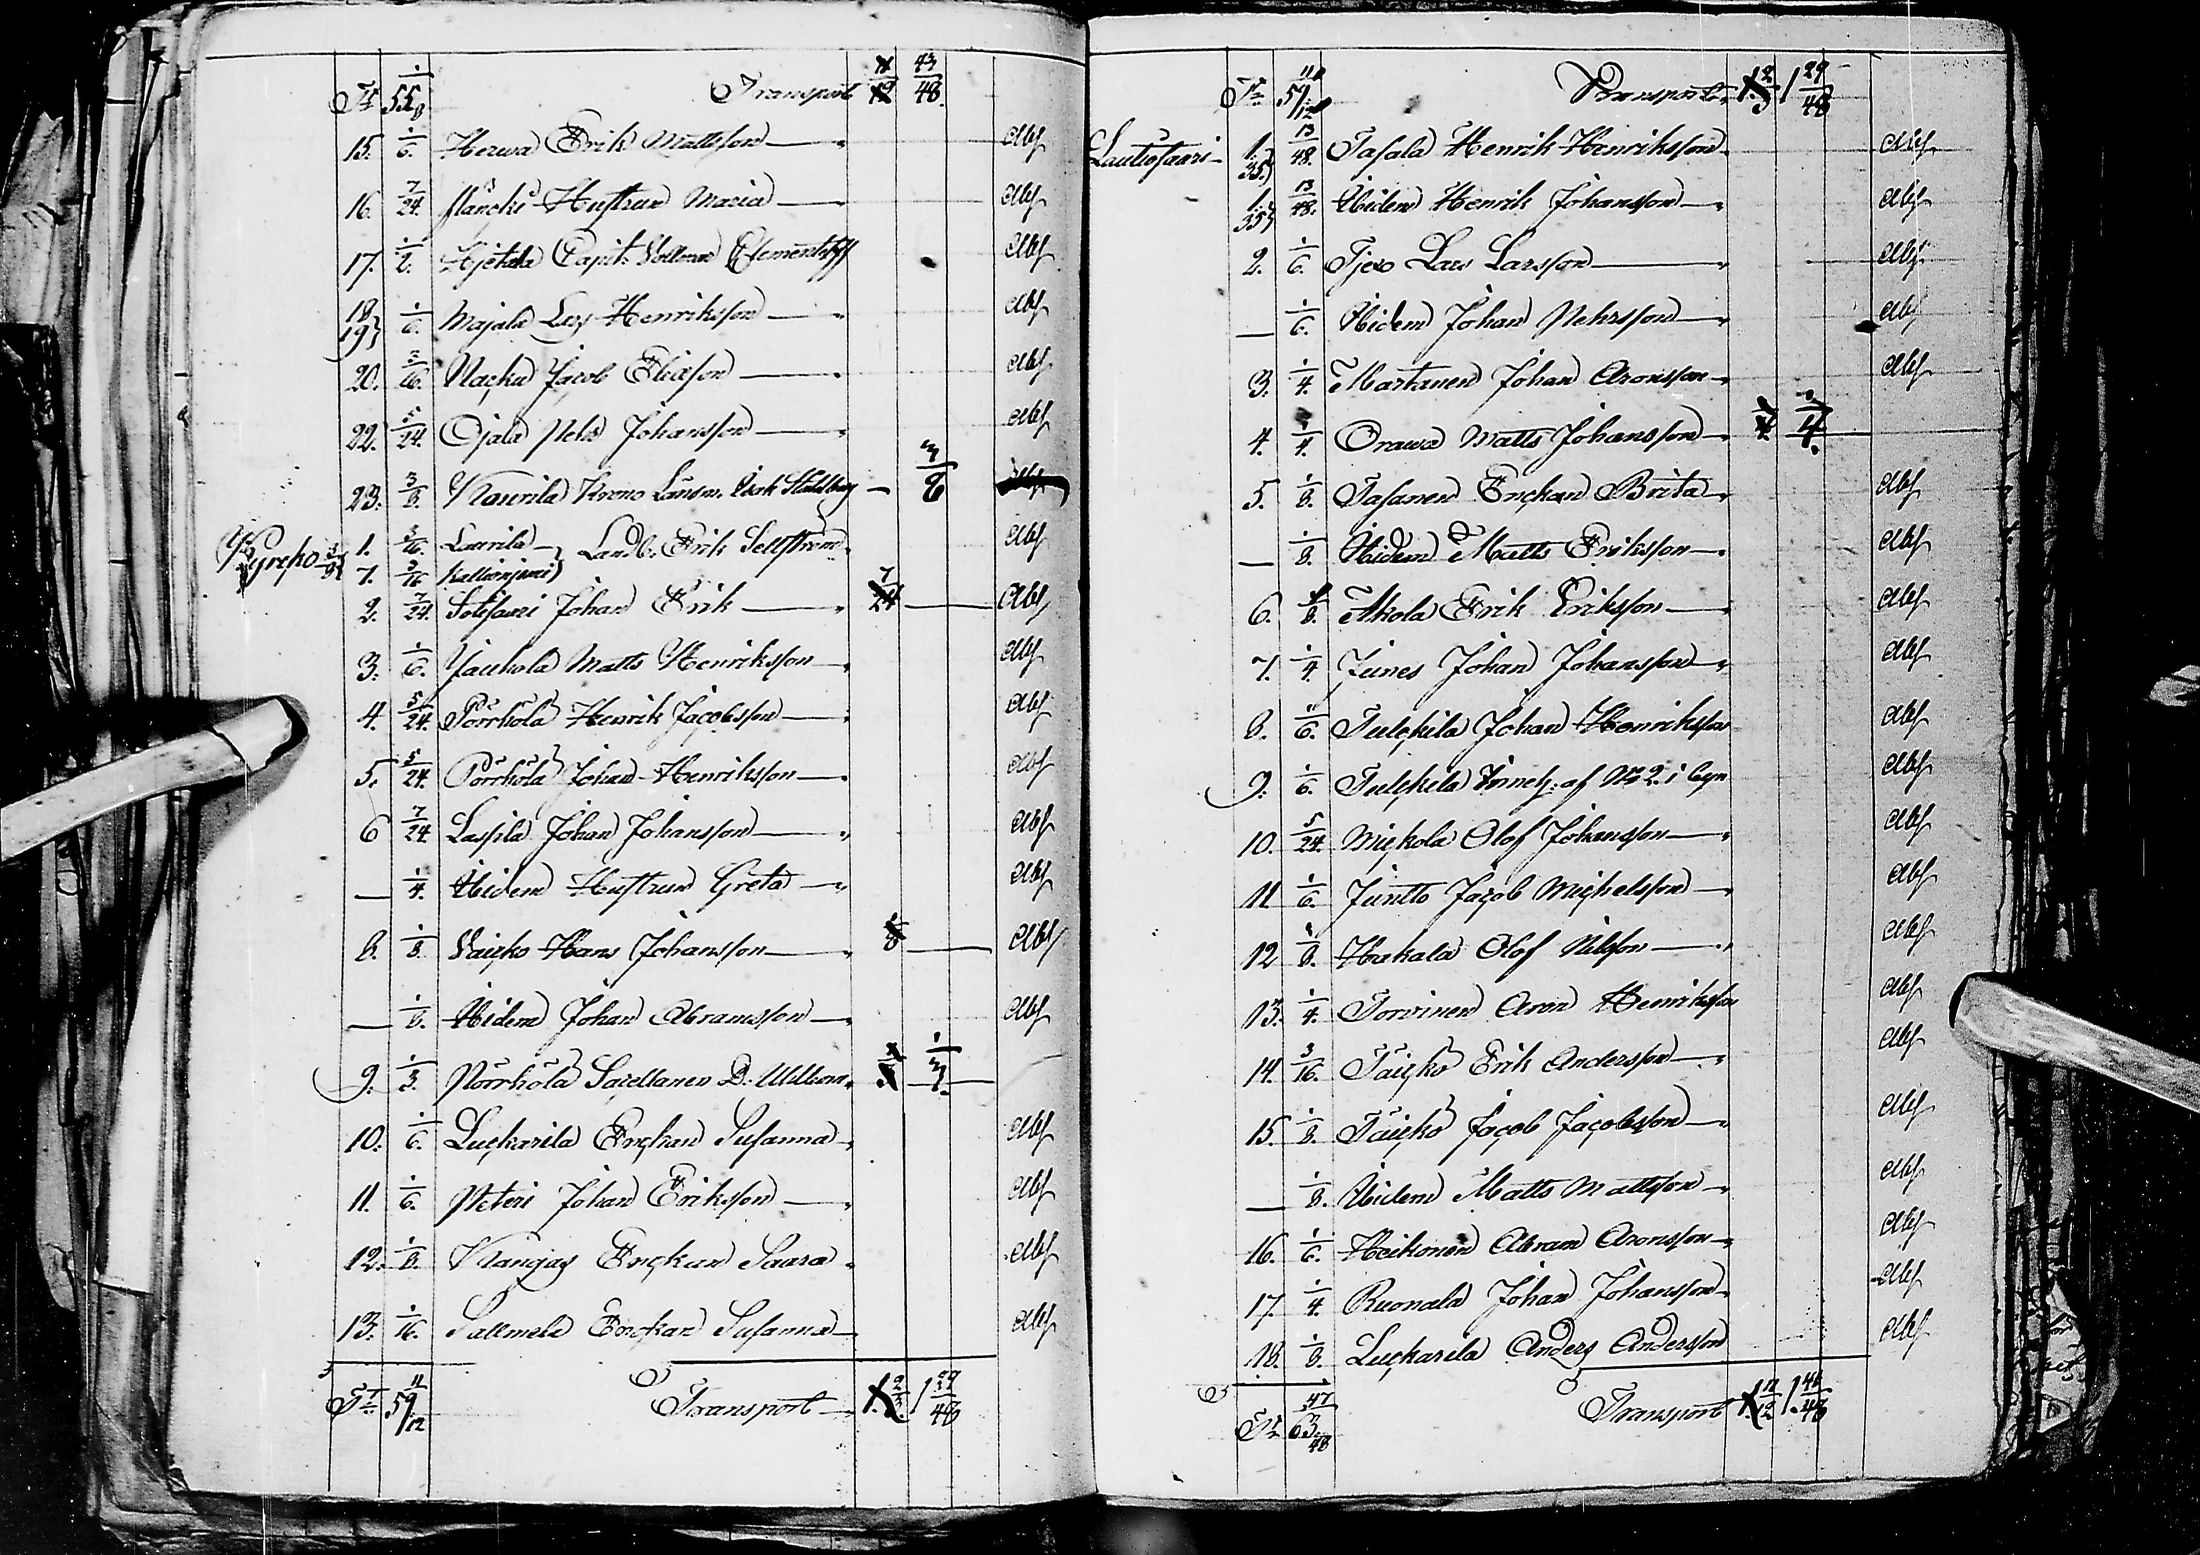 Tr 55 1/8 Transport 43/48
15. 1/6. Herwa Erik Mattsson Abs
16. 7/24. Hustrun Maria Abs
17. 1/2. Hjetala Capit. Clementeoff Abs
18 19} 1/6. Majala Lars Henriksson Abs
20. 3/16. Nacku Jacob Eliasson Abs
22. 5/24. Ojala Nehr Johansson Abs
23. 3/8. Kaurila Krono Länsm. Isak Ståhlberg 3/8
1. 3/16. Laurila
7. 3/16 Kallionjuuri } Landb. Erik Sellström Abs
2. 7/24. Johan Erik 7/24 Abs
3. 1/6. Jaukola Matts Henriksson Abs
4. 5/24. Pörrhölä Henrik Jacobsson Abs
5. 5/24. Pörrhölä Johan Henriksson Abs
6 7/24. Laspila Johan Johansson Abs
— 1/4. Ibidem Hustrun Greta Abs
8. 1/8. Vaicko Hans Johansson 1/8 Abs
— 1/8. Ibidem Johan Abramsson Abs
9. 1/3. Pörrhölä Sacellanen D. 1/3
10. 1/6. Luckarila Enckan Susanna Abs
11. 1/6. Peteri Johan Eriksson Abs
12. 1/8. Kangas Enckan Saara Abs
13. 1/16. Sallmela Enckan Susanna Abs
Tr 59 11/12 Transport 1 2/3. 1 29/48
Tr 59 11/12 Transport 1 2/3 1 29/48
Lautiosaari 1. 35} 13/48. Tasala Henrik Henriksson Abs
1. 35} 13/48. Ibidem Henrik Johansson Abs
2. 1/6. Tjero Lars Larsson Abs
— 1/6. Ibidem Johan Pehrsson Abs
3. 1/4. Martanen Johan Aronsson Abs
4. 1/4. Orawa Matts Johansson 1/4 1/4.
5. 1/8. Tasanen Enckan Brita Abs
— 1/8. Ibidem Matts Eriksson Abs
6. 1/8. Akola Erik Eriksson Abs
7. 1/4. Junes Johan Johansson Abs
8. 1/6. Tulckila Johan Henriksson Abs
9. 1/6. Tulckila af No 2. i Byn Abs
10. 5/24. Mickola Olof Johansson Abs
11 1/6. Juntto Jacob Michelsson Abs
12 1/8. Hakala Olof Nilsson Abs
13. 1/4. Torvinen Aron Henriksson Abs
14. 3/16. Täickö Erik Andersson Abs
15. 1/8. Täickö Jacob Jacobsson Abs
— 1/8. Ibidem Matts Mattsson Abs
16. 1/6. Heikonen Abram Aronsson Abs
17. 1/4. Ruonala Johan Johansson Abs
18. 1/8. Luckarila Anders Andersson Abs
Tr 63 47/48 Transport 1 11/12 1. 41/48